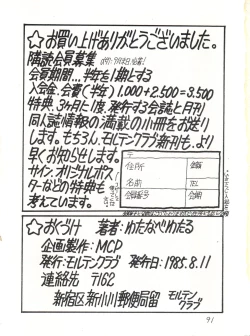 ☆お買い上げありがとうございました。
購読会員募集
会員期間…半年を1期とする
入会金、会費(半年) 1,000+2,500=3,500
特典、3ヶ月に1度、発行する会誌と月刊
同人誌情報の満載の小冊をお送り
します。もちろん、モルテンクラブ新刊も、より
早くお知らせします。
サイン、オリジナルポス
ターなどの特典も
考えています。
住所
名前
TEL
会員番号
☆おくづけ 著者:わたなべわたる
企画製作:MCP
発行:モルテンクラブ 発行日:1985.8.11
連絡先 〒162
新宿区新小川郵便局留 モルテンクラブ
91